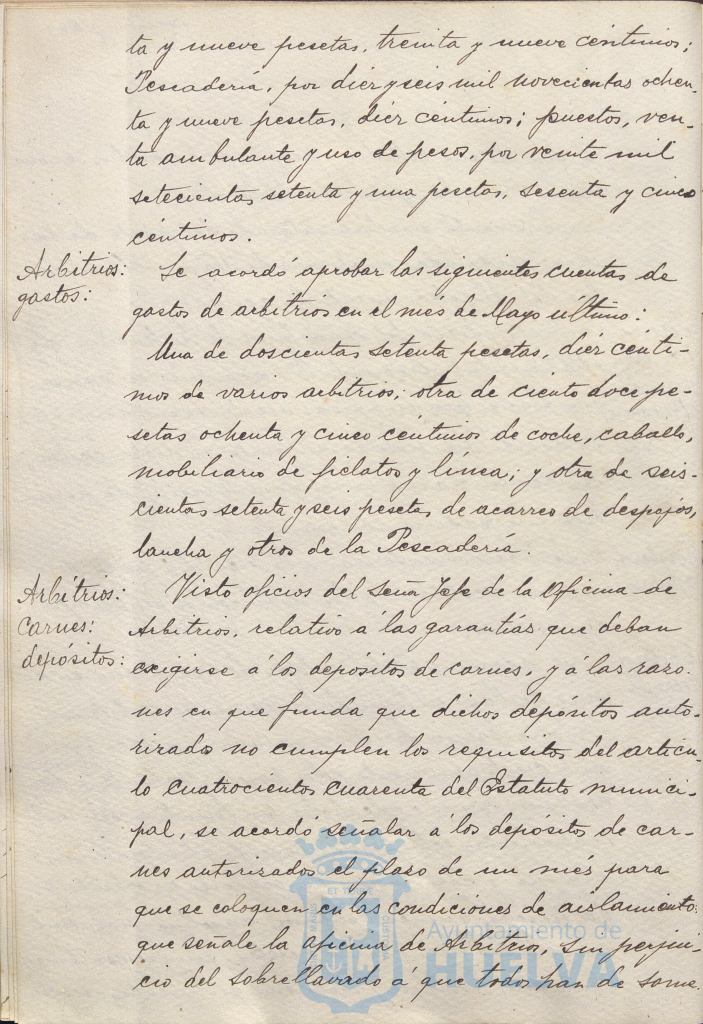 ta y nueve pesetas, treinta y nueve céntimos;
Pescadería, por diez y seis mil novecientas ochen-
ta y nueve pesetas, diez céntimos; puestos, ven-
ta ambulante y uso de pesos, por veinte mil
setecientas setenta y una pesetas, sesenta y cinco
céntimos.
Arbitrios:
gastos:
Se acordó aprobar las siguientes cuentas de
gastos de arbitrios en el més de Mayo último:
Una de doscientas setenta pesetas, diez cénti-
mos de varios arbitrios; otra de ciento doce pe-
setas ochenta y cinco céntimos de coche, caballo,
mobiliario de fielatos y línea; y otra de seis-
cientas setenta y seis pesetas, de acarreo de despojos,
lancha y otros de la Pescadería.
Arbítrios:
carnes:
depósitos:
Visto oficios del Señor Jefe de la Oficina de
Arbitrios, relativo á las garantías que deban
exigirse á los depósitos de carnes, y á las razo-
nes en que funda que dichos depósitos auto-
rizados no cumplen los requisitos del artícu-
lo cuatrocientos cuarenta del Estatuto munici-
pal, se acordó señalar á los depósitos de car-
nes autorizados el plazo de un més para
que se coloquen en las condiciones de aislamiento
que señale la oficina de Arbitrios, sin perjui-
cio del sobrellavado á que todos han de some-
Ayuntamiento de
HUELVA